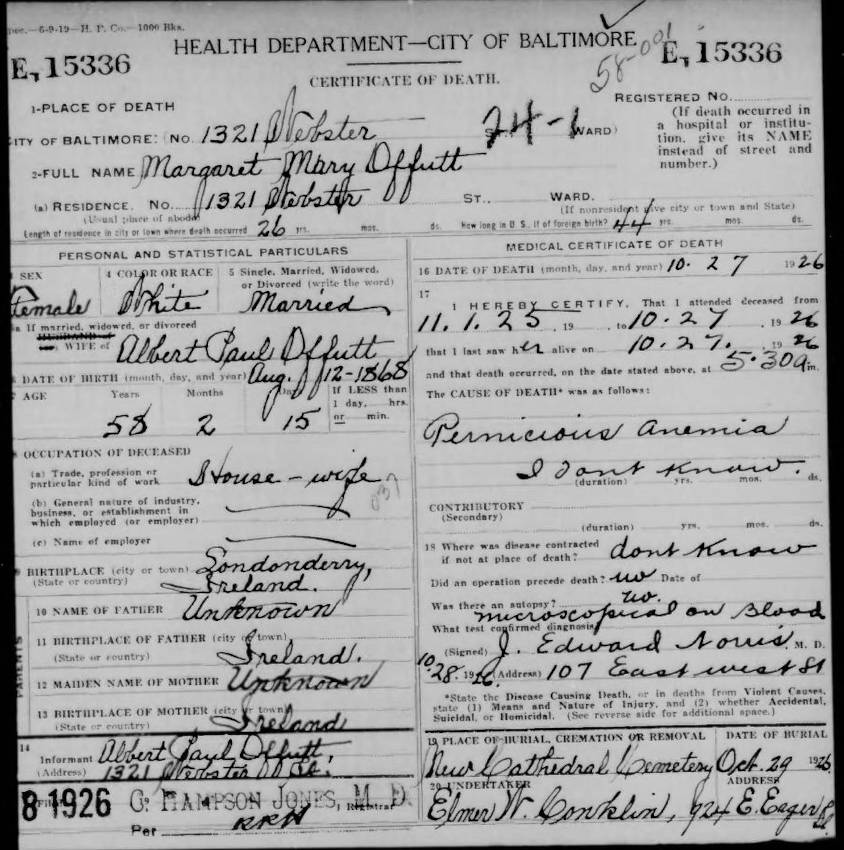 pec.—6-9-19—H. P. Co.—1000 Bks.
HEALTH DEPARTMENT—CITY OF BALTIMORE
E,15336
58-001
E,15336
CERTIFICATE OF DEATH.
1-PLACE OF DEATH
REGISTERED No.
CITY OF BALTIMORE: (No. 1321 Webster St., 24-1 WARD)
(If death occurred in a hospital or institution, give its NAME instead of street and number.)
2-FULL NAME Margaret Mary Offutt
(a) RESIDENCE. No. 1321 Webster ST., WARD.
(Usual place of abode)
(If nonresident give city or town and State)
Length of residence in city or town where death occurred 26 yrs. mos. ds. How long in U. S., if of foreign birth? 44 yrs. mos. ds.
PERSONAL AND STATISTICAL PARTICULARS
3 SEX
Female
4 COLOR OR RACE
White
5 Single, Married, Widowed, or Divorced (write the word)
Married
5a If married, widowed, or divorced
HUSBAND of
(or) WIFE of Albert Paul Offutt
6 DATE OF BIRTH (month, day, and year) Aug. 12-1868
7 AGE Years Months Days If LESS than 1 day, hrs. or min.
58 2 15
8 OCCUPATION OF DECEASED
(a) Trade, profession or particular kind of work House-wife
037
(b) General nature of industry, business, or establishment in which employed (or employer)
(c) Name of employer
9 BIRTHPLACE (city or town) Londonderry,
(State or country) Ireland.
PARENTS
10 NAME OF FATHER Unknown
11 BIRTHPLACE OF FATHER (city or town)
(State or country) Ireland.
12 MAIDEN NAME OF MOTHER Unknown
13 BIRTHPLACE OF MOTHER (city or town)
(State or country) Ireland
14
Informant Albert Paul Offutt,
(Address) 1321 Webster St.
8 1926 C. HAMPSON JONES, M. D. Registrar
Per RRH
MEDICAL CERTIFICATE OF DEATH
16 DATE OF DEATH (month, day, and year) 10. 27 1926
17
I HEREBY CERTIFY, That I attended deceased from
11.1.25, 19 , to 10.27, 1926
that I last saw her alive on 10.27., 1926
and that death occurred, on the date stated above, at 5.30a m.
The CAUSE OF DEATH* was as follows:
Pernicious anemia
I dont know.
(duration) yrs. mos. ds.
CONTRIBUTORY
(Secondary)
(duration) yrs. mos. ds.
18 Where was disease contracted if not at place of death? dont know
Did an operation precede death? no Date of
Was there an autopsy? no.
What test confirmed diagnosis? microscopical on Blood
(Signed) J. Edward Norris M. D.
10/28. 1926. (Address) 107 East west St
*State the Disease Causing Death, or in deaths from Violent Causes, state (1) Means and Nature of Injury, and (2) whether Accidental, Suicidal, or Homicidal. (See reverse side for additional space.)
19 PLACE OF BURIAL, CREMATION OR REMOVAL
New Cathedral Cemetery
DATE OF BURIAL
Oct. 29 1926.
20 UNDERTAKER
Elmer W. Conklin,
ADDRESS
924 E. Eager St